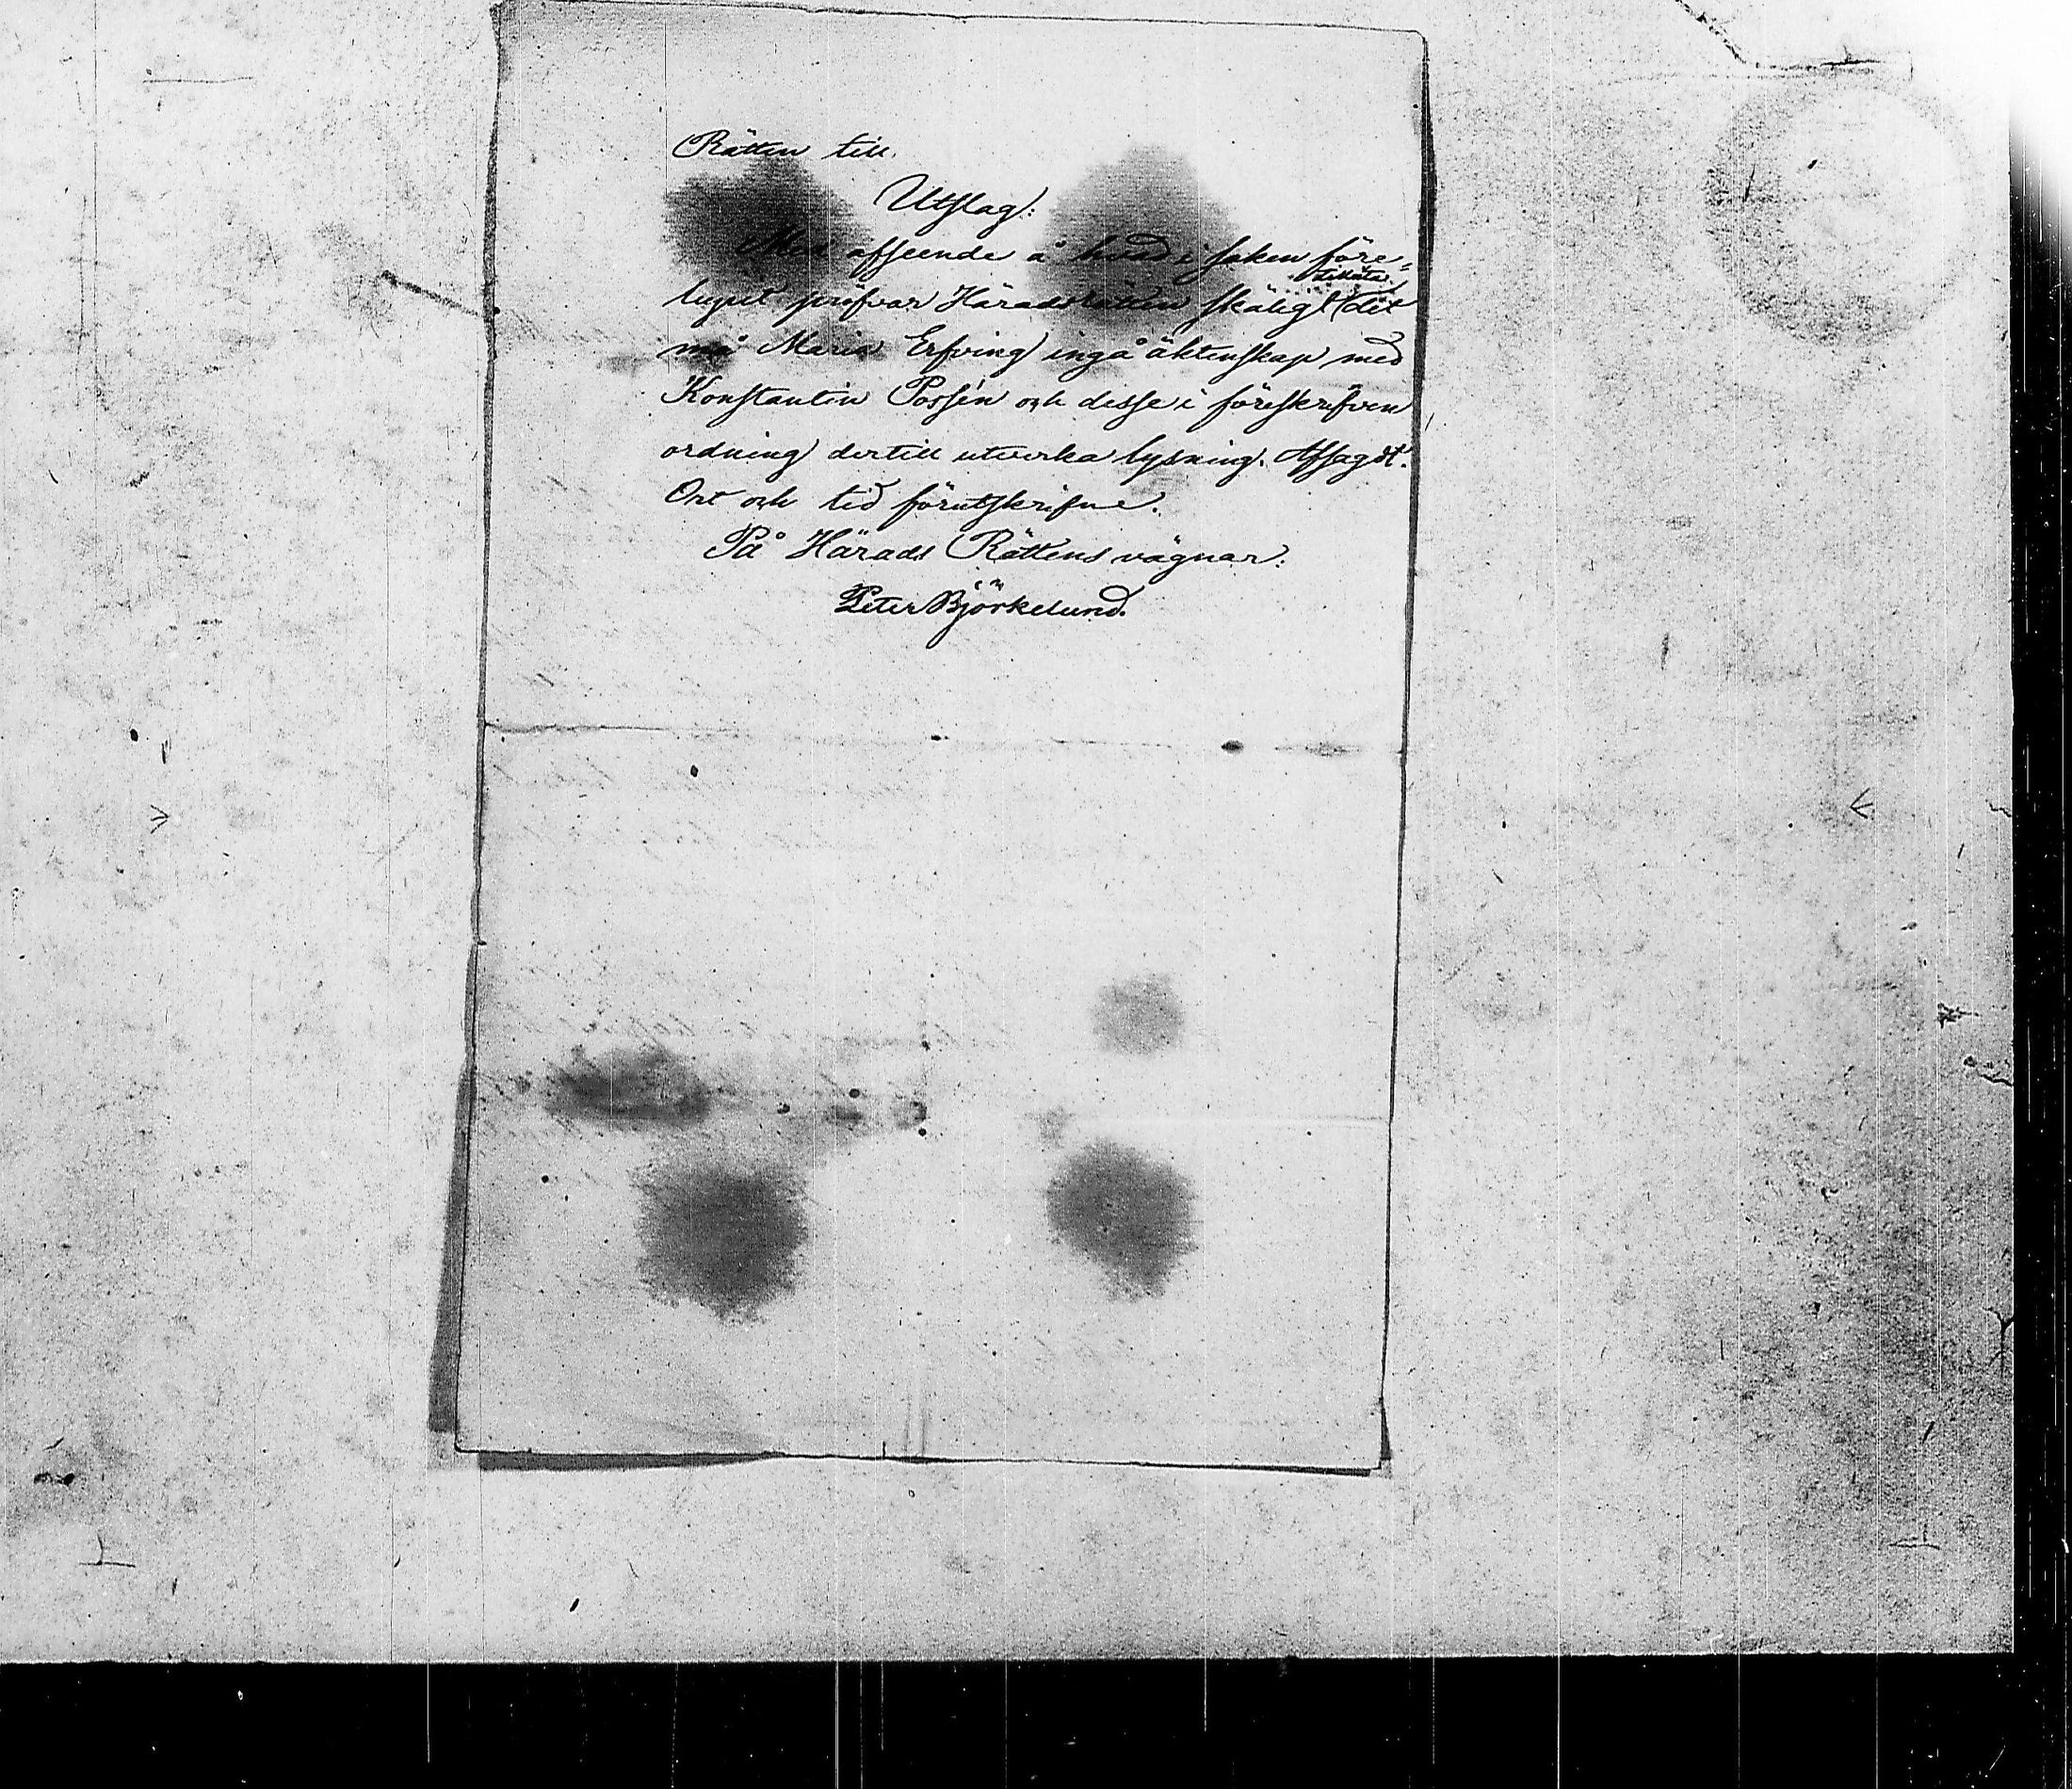 Rätten till.
Utslag:
Med afseende å hvad i saken före-
tillåta
lupit pröfvar Häradsrätten skäligt det
må Maria Erfving ingå äktenskap med
Konstantin Possén och desse i föreskrifven
ordning dertill utverka lysning. Afsagdt.
Ort och tid förutskrifne.
På Härads Rättens vägnar:
Peter Björkelund.